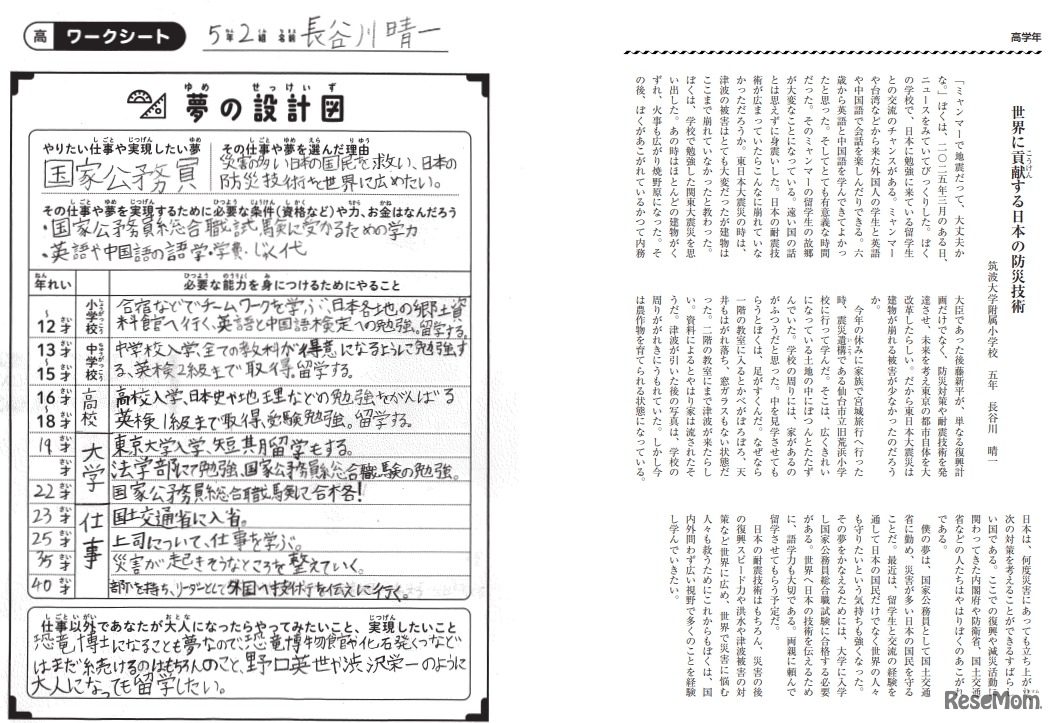 高 ワークシート 5年2組 名前 長谷川晴一
夢の設計図
やりたい仕事や実現したい夢
国家公務員
その仕事や夢を選んだ理由
災害の多い日本の国民を救い、日本の
防災技術を世界に広めたい。
その仕事や夢を実現するために必要な条件(資格など)や力、お金はなんだろう
・国家公務員総合職試験に受かるための学力
・英語や中国語の語学・学費・じゅく代
年れい 必要な能力を身につけるためにやること
〜12才 小学校 合宿などでチームワークを学ぶ、日本各地の郷土資
料館へ行く、英語と中国語検定への勉強。留学する。
13才〜15才 中学校 中学校入学、全ての教科が得意になるように勉強す
る、英検2級まで取得。留学する。
16才〜18才 高校 高校入学、日本史や地理などの勉強をがんばる
英検1級まで取得、受験勉強。留学する。
19才 大学 東京大学入学、短期留学もする。
法学部にて勉強、国家公務員総合職試験の勉強。
22才 国家公務員総合職試験に合格!
23才 仕事 国土交通省に入省。
25才 上司について、仕事を学ぶ。
35才 災害が起きそうなところを整えていく。
40才 部下を持ち、リーダーとして外国へ技術を伝えに行く。
仕事以外であなたが大人になったらやってみたいこと、実現したいこと
恐竜博士になることも夢なので、恐竜博物館や化石発くつなど
はまだ続けるのはもちろんのこと、野口英世や渋沢栄一のように
大人になっても留学したい。
高学年
世界に貢献する日本の防災技術
筑波大学附属小学校 五年 長谷川 晴一
「ミャンマーで地震だって、大丈夫か
な。」ぼくは、二〇二五年三月のある日、
ニュースをみていてびっくりした。ぼく
の学校で、日本に勉強に来ている留学生
との交流のチャンスがある。ミャンマー
や台湾などから来た外国人の学生と英語
や中国語で会話を楽しんだりできる。六
歳から英語と中国語を学んできてよかっ
たと思った。そしてとても有意義な時間
だった。そのミャンマーの留学生の故郷
が大変なことになっている。遠い国の話
とは思えずに身震いした。日本の耐震技
術が広まっていたらこんなに崩れていな
かっただろうか。東日本大震災の時は、
津波の被害はとても大変だったが建物は
ここまで崩れていなかったと教わった。
ぼくは、学校で勉強した関東大震災を思
い出した。あの時はほとんどの建物がく
ずれ、火事も広がり焼野原になった。そ
の後、ぼくがあこがれているかつて内務
大臣であった後藤新平が、単なる復興計
画だけでなく、防災対策や耐震技術を発
達させ、未来を考え東京の都市自体を大
改革したらしい。だから東日本大震災は
建物が崩れる被害が少なかったのだろう
か。
今年の休みに家族で宮城旅行へ行った
時、震災遺構である仙台市立旧荒浜小学
校に行って学んだ。そこは、広くきれい
になっている土地の中にぽつんとたたず
んでいた。学校の周りには、家があるの
がふつうだと思った。中を見学させても
らうとぼくは、足がすくんだ。なぜなら
一階の教室に入るとかべがぼろぼろ、天
井もはがれ落ち、窓ガラスもない状態だ
った。二階の教室にまで津波が来たらし
い。資料によるとやはり家は流されたそ
うだ。津波が引いた後の写真は、学校の
周りががれきにうもれていた。しかし今
は農作物を育てられる状態になっている。
日本は、何度災害にあっても立ち上がり
次の対策を考えることができるすばらし
い国である。ここでの復興や減災活動に
関わってきた内閣府や防衛省、国土交通
省などの人たちはやはりぼくのあこがれ
である。
僕の夢は、国家公務員として国土交通
省に勤め、災害が多い日本の国民を守る
ことだ。最近は、留学生と交流の経験を
通して日本の国民だけでなく世界の人々
も守りたいという気持ちも強くなった。
その夢をかなえるためには、大学に入学
し国家公務員総合職試験に合格する必要
がある。世界へ日本の技術を伝えるため
に、語学力も大切である。両親に頼んで
留学させてもらう予定だ。
日本の耐震技術はもちろん、災害の後
の復興スピード力や洪水や津波被害の対
策など世界に広め、世界で災害に悩む
人々も救うためにこれからもぼくは、国
内外問わず広い視野で多くのことを経験
し学んでいきたい。
ReseMom